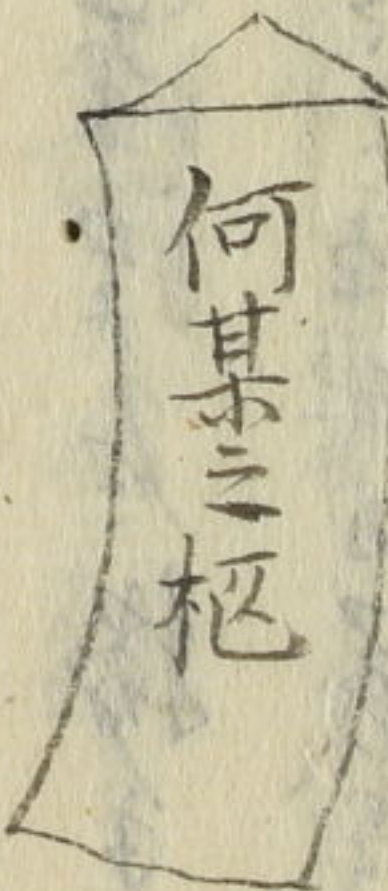 何某之柩